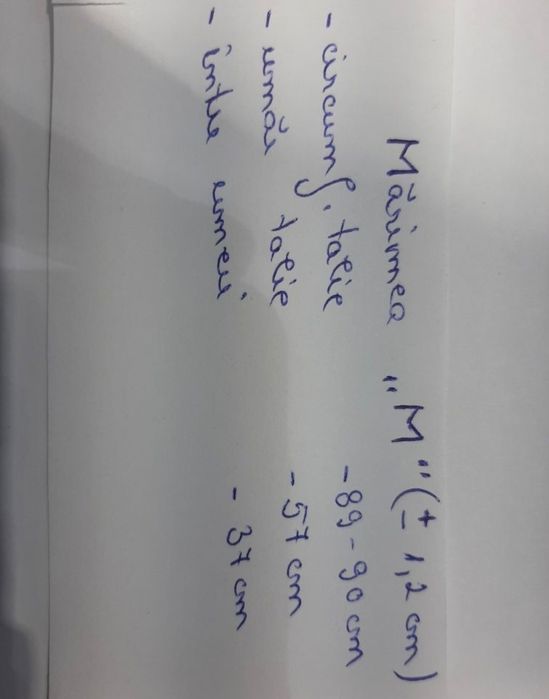 Mărimea „M" (± 1,2 cm)
- circumf. talie - 89-90 cm
- umăr talie - 57 cm
- între umeri - 37 cm